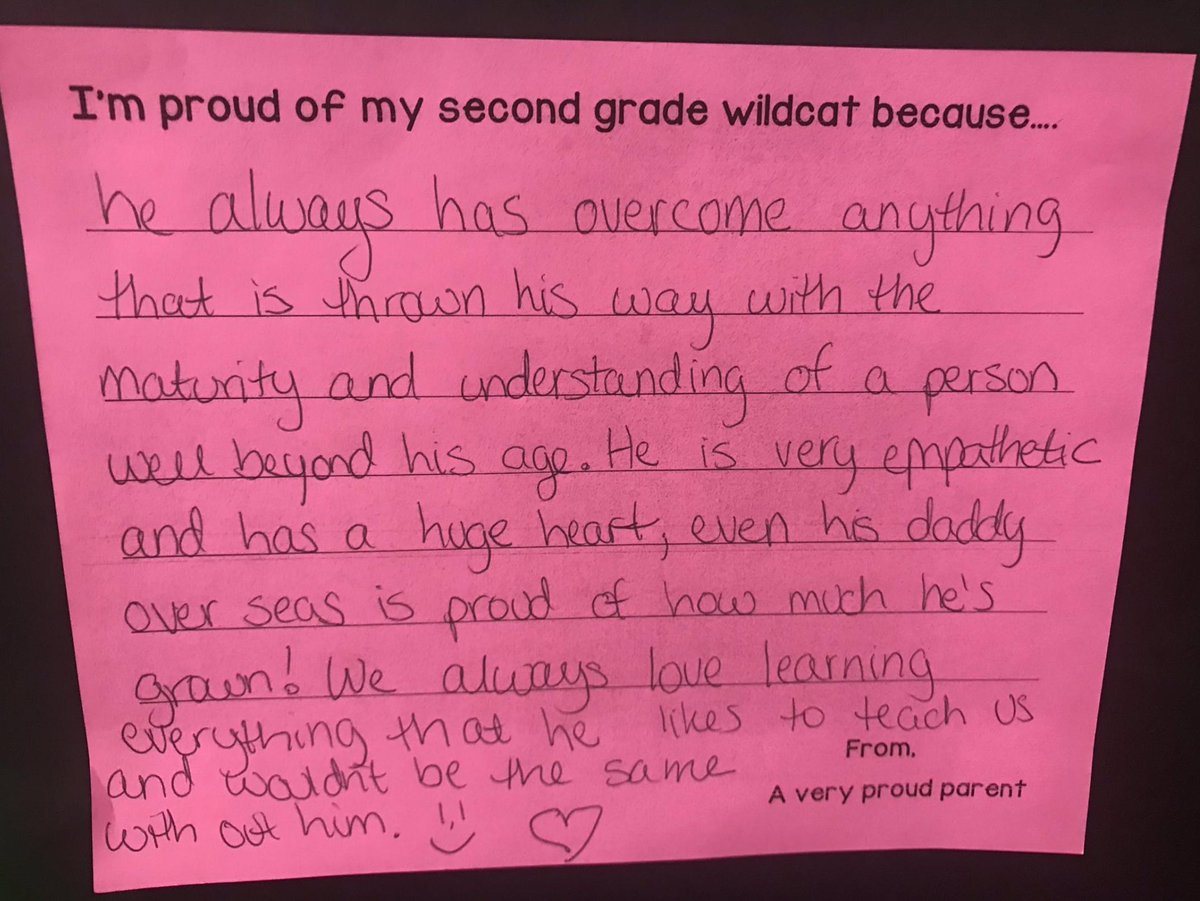 I'm proud of my second grade wildcat because....
he always has overcome anything
that is thrown his way with the
maturity and understanding of a person
well beyond his age. He is very empathetic
and has a huge heart, even his daddy
over seas is proud of how much he's
grown! We always love learning
everything that he likes to teach us
From,
and wouldn't be the same
A very proud parent
with out him.